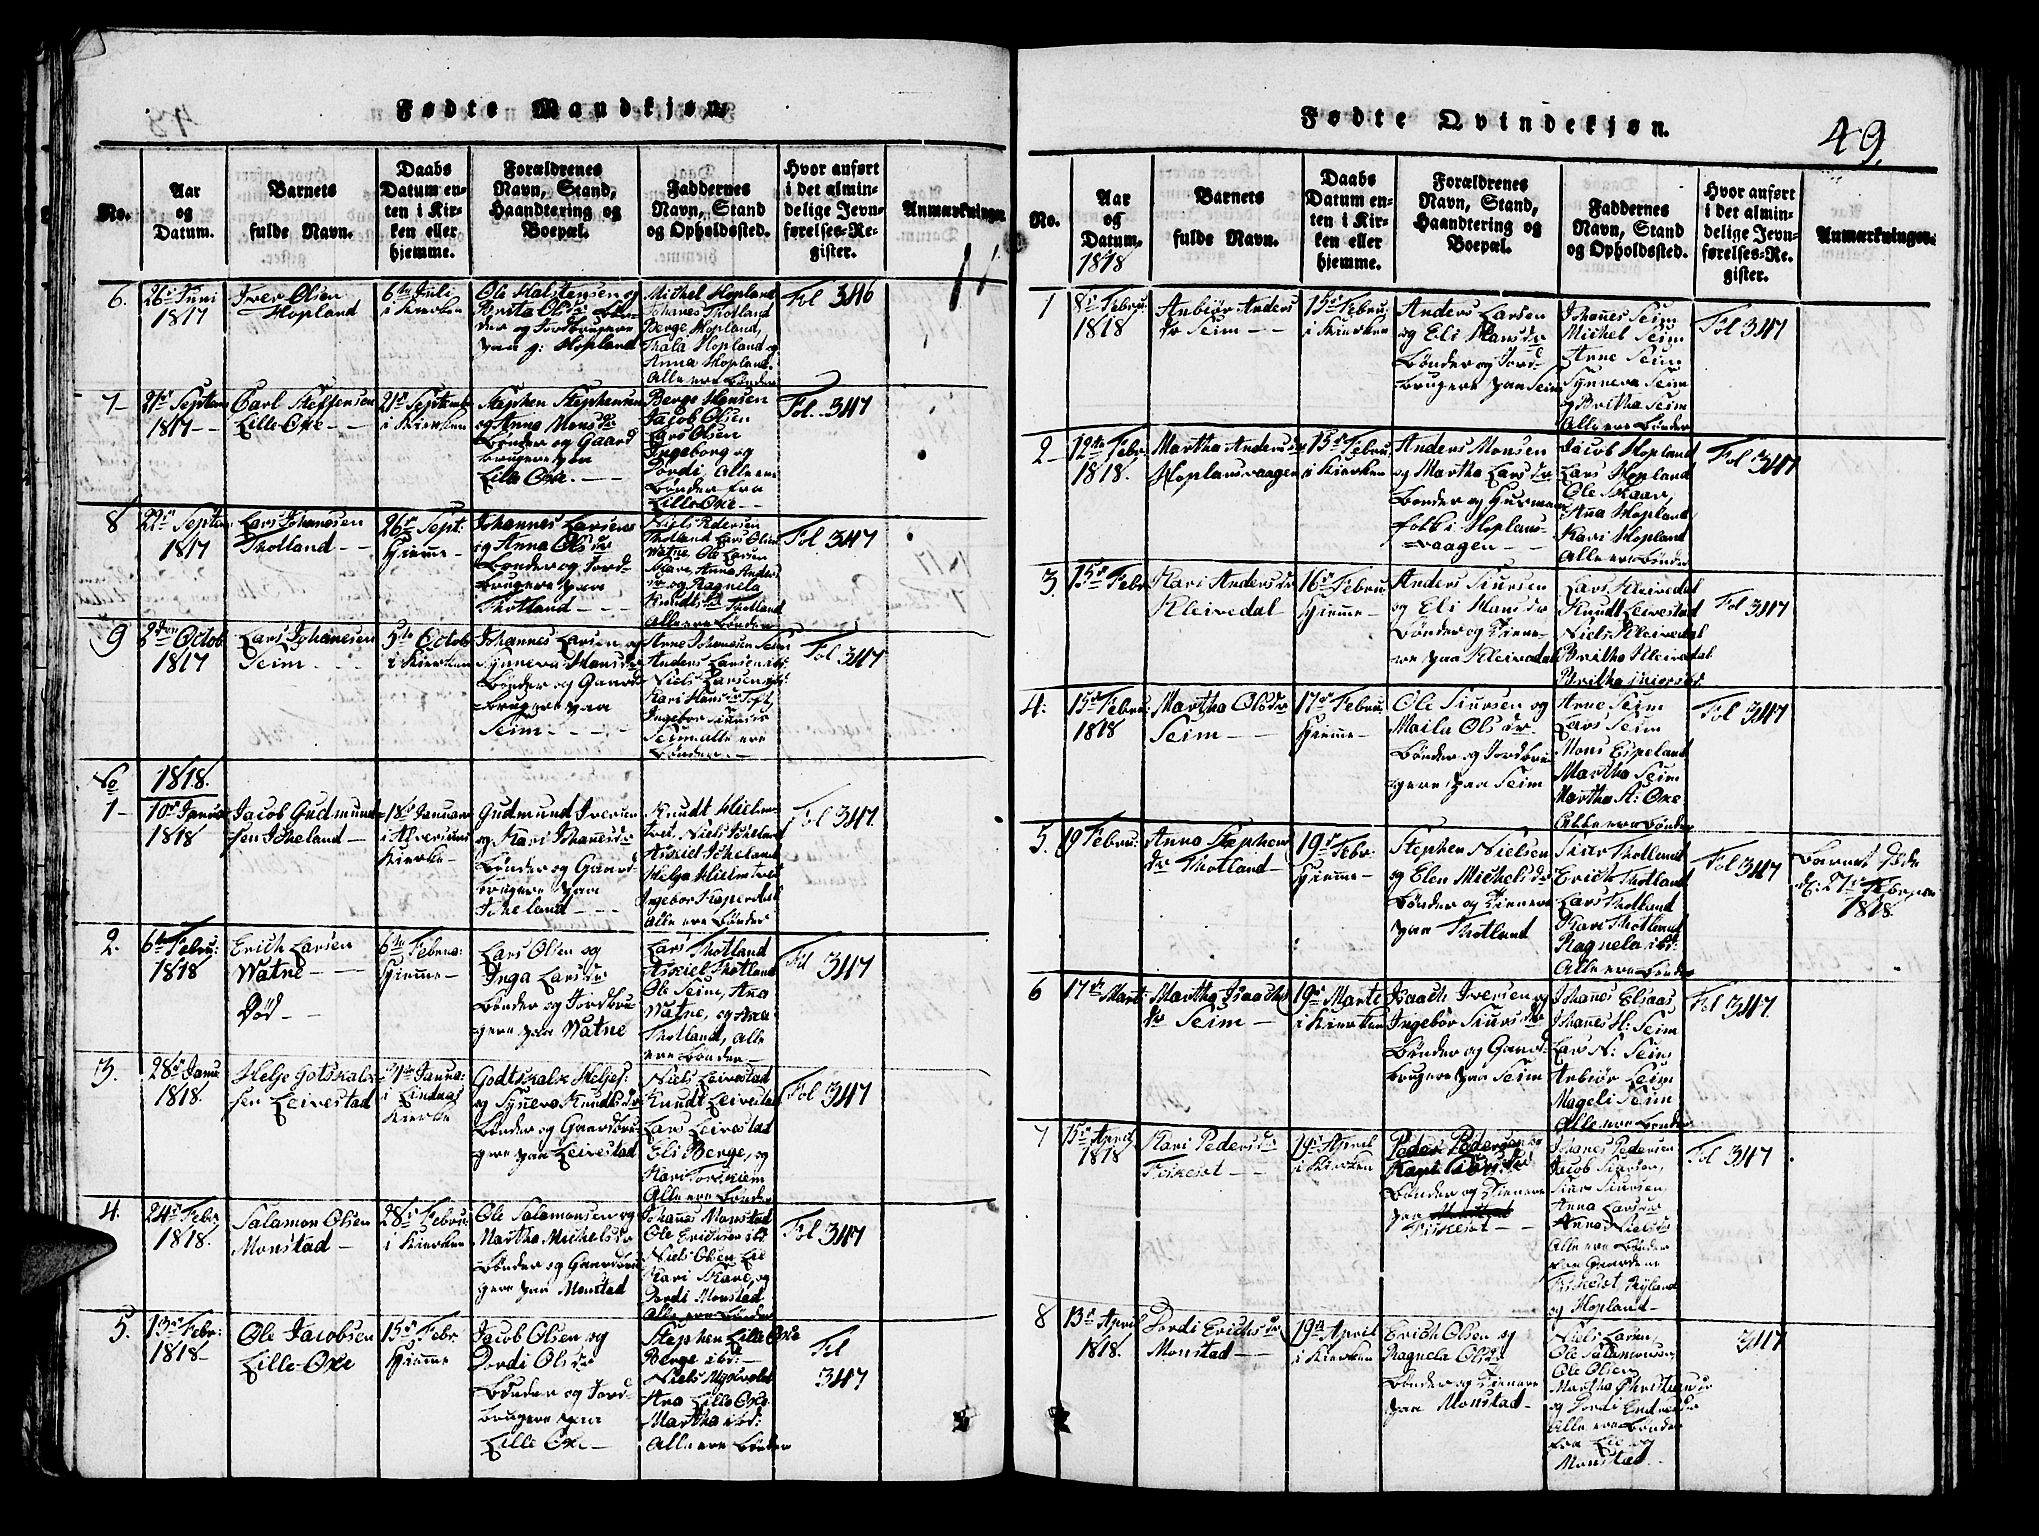 Fødte Mandkjøn.
No.
Aar
og
Datum.
Barnets
fulde Navn.
Daabs
Datum en-
ten i Kir-
ken eller
hjemme.
Forældrenes
Navn, Stand,
Haandtering og
Boepæl.
Faddernes
Navn, Stand
og Opholdssted.
Hvor anført
i det almin-
delige Jevn-
førelses-Re-
gister.
Anmærkninger.
6.
26de Juni
1817
Iver Olsen
Hopland
6te Juli
i Kierken
Ole Halstensen og
Brita Olsdr
og Jordbrugere
paa g: Hopland
Michel Hopland
Johanes Thotland
Berge Hopland,
Thala Hopland og
Anna Hopland.
Alle ere Bønder
Fol 346
7
21de Septem
1817
Carl Steffensen
Lille Oxe
21de Septemb
i Kierken
Stephen Stephensen
og Anna Monsdr
Bønder og Gaard
brugere paa
Lille Oxe.
Berge Hansen
Jacob Olsen
Lars Olsen
Ingeborg og
Dordi, Alle ere
Bønder fra
Lille Oxe
Fol. 347
8
22de Septem
1817
Lars Johanesen
Thotland
26de Sept:
Hjemme
Johannes Larsen
og Anna Olsdr
Bønder og Jord-
brugere paa
Thotland
Niels Pedersen
Thotland Lars Olsen
Watne Ole Larsen
Anna Anders
dr og Ragnela
Knudtsdr Thotland
Alle ere Bønder
Fol 347
9
2den Octob
1817
Lars Johanesen
Seim
5te Octob
i Kierken
Johannes Larsen og
Synneva Hansdr
Bønder og Gaard-
brugere paa
Seim
Arne Johanesen Seim
Anders Larsen ibd:
Niels Larsen ibd:
Kari Hansdr
Ingebor Siursdr
Seim alle ere
Bønder
Fol 347
No
1818.
1
10de Janua
1818
Jacob Gudmund
sen Ickeland
18de Januar
i Alversunds
Kierke
Gudmund Iversen
og Kari Johannesdr
Bønder og Gaard-
brugere paa
Ickeland
Knudt Hielm
tvet, Niels Ickeland
Askiel Ickeland
Helga Hielmtvet
Ingebor
Alle ere Bønder
Fol 347.
2.
6te Febru:
1818
Erich Larsen
Watne
Død
6te Februa:
Hjemme
Lars Olsen og
Inga Larsdr
Bønder og Jordbru-
gere paa Watne
Lars Thotland
Askiel Thotland
Ole Seim, Ana
Watne, og Ana
Thotland, Alle
ere Bønder
Fol 347
3.
28de Janu
1818.
Helje Gotskalk-
sen Leirestad
31te Janua.
i Lindaas
Kierke
Godtskalk Heljes:
og Syneva Knudtsdr
Bønder og Gaardbru-
gere paa Leirestad
Niels Leirestad
Knudt Leirestad
Lars Leirestad
Eli Berge, og
Kari Torskeim
Alle ere Bønder
Fol 347
4.
24de Febr
1818.
Salamon Olsen
Monstad
28de Febru:
i Kierken
Ole Salamonsen og
Martha Michelsdr
Bønder og Gaardbru
gere paa Monstad
Johanes Monstad
Ole Erichsen ibd
Niels Olsen Lie
Kari Skare, og
Dordi Monstad
Alle ere Bønder
Fol 347
5.
13de Febr:
1818
Ole Jacobsen
Lille-Oxe
15de Febr
Hjemme
Jacob Olsen og
Dordi Olsdr
Bønder og Jord-
brugere paa
Lille Oxe
Stephen Lille Oxe
Berge ibd:
Niels
Ana Lille Oxe
Martha ibd:
Alle ere Bønder
Fol
347
Fødte Qvindekjøn.
49.
No.
Aar
og
Datum.
1818
Barnets
fulde Navn.
Daabs
Datum en-
ten i Kir-
ken eller
hjemme.
Forældrenes
Navn, Stand,
Haandtering og
Boepæl.
Faddernes
Navn, Stand
og Opholdssted.
Hvor anført
i det almin-
delige Jevn-
førelses-Re-
gister.
Anmærkninger.
1
8de Febru:
1818
Anbiør Anders
dr Seim
15de Febru
i Kierken
Anders Larsen
og Eli Hansdr
Bønder og Jord-
brugere paa Seim
Johanes Seim
Michel Seim
Anne Seim
Synneva Seim
og Britha Seim
Alle ere Bønder
Fol 347
2
12te Febr
1818.
Martha Andersdr
Hoplansvaagen
15de Febru
i Kierken
Anders Monsen
og Martha Larsdr
Bønder og Husmans
folk i Hoplans-
vaagen
Jacob Hopland
Lars Hopland
Ole Skaar,
Ana Hopland
Kari Hopland
Alle ere Bønder
Fol 347
3.
15de Febr
Kari Andersdr
Kleivedal
16de Febru
Hjemme
Anders Siursen
og Eli Hansdr
Bønder og Tiene-
re paa Kleivedal
Lars Kleivedal
Knudt Leirestad
Niels Kleivedal
Britha Kleivedal
Britha
Fol 347
4.
15de Febru
1818
Martha Olsdr
Seim
17de Febru
Hjemme
Ole Siursen og
Maila Olsdr
Bønder og Jordbru
gere paa Seim
Arne Seim
Lars Seim
Mons Espeland
Martha Seim
Martha A: Oxe
Alle ere Bønder
Fol 347
5.
19 Febru:
Anna Stephens
dr Thotland
19de Febr:
Hjemme
Stephen Nielsen
og Elen Michelsdr
Bønder og Tienere
paa Thotland
Siver Thotland
Erich Thotland
Lars Thotland
Kari Thotland
Ragnela ibd:
Alle ere Bønder
Fol 347
Barnet døde
d: 27de Februar
1818.
6
17de Marti
Martha Isaachs
dr Seim
19de Marti
i Kierken
Isaach Iversen og
Ingebor Siursdr
Bønder og Gaard-
brugere paa Seim
Johanes Elsaas
Johanes H: Seim
Lars N: Seim
Anbiør Seim
Mageli Seim
Alle ere Bønder
Fol 347
7
15de April
1818
Kari Pedersdr
Fiskeset
19de April
i Kierken
Peder Pedersen og
Kari Larsdr
Bønder og Tienere
paa Monstad
Fiskeset
Johanes Pedersen
Jacob Siursen,
Siur Siursen,
Anna Larsdr
Anna Nielsdr
Alle ere Bønder
paa Gaardene
Fiskeset Ryland
og Hopland
Fol 347
8
13de April
1818.
Dordi Erichsdr
Monstad
19de April
i Kierken
Erich Olsen og
Ragnela Olsdr
Bønder og Tienere
paa Monstad
Niels Larsen,
Ole Salamonsen,
Ole Olsen
Martha Christiansdr
og Dordi Endresdr
Alle ere Bønder
fra Lie og
Monstad.
347